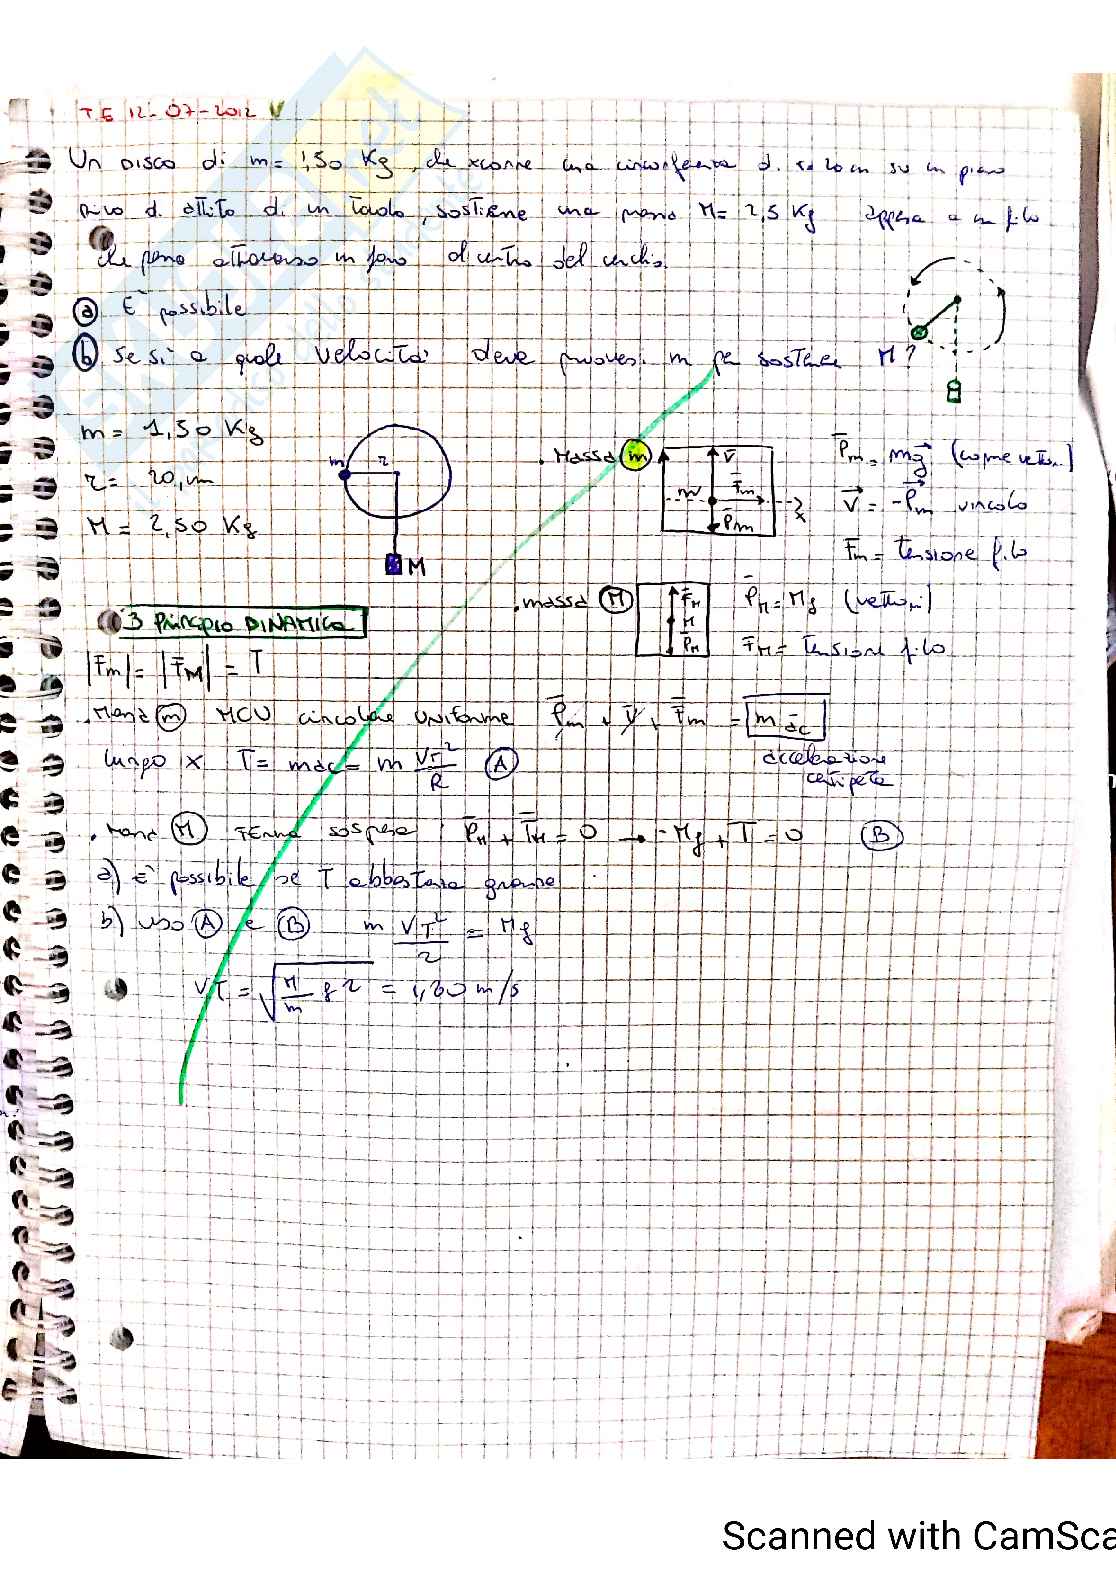 T.E 12-07-2012 V
Un DISCO di m= 1,50 Kg, che xcorre una circonferenza d. 20 cm su un piano
privo d. attrito di un tavolo, sostiene una massa M= 2,5 Kg appesa a un filo
che passa attraverso un foro al centro del cerchio.
a E' possibile
b se sì a quale velocità deve muoversi m per sostenere M?
m = 1,50 Kg
r = 20, cm
M = 2,50 Kg
m r
M
. Massa m
V
m Fm x
Pm
Pm = mg (come vettori)
V = -Pm vincolo
Fm = tensione filo
. massa M
FM
M
PM
PM = Mg (vettori)
FM = tensione filo
3 Principio DINAMICA
|Fm| = |FM| = T
. Massa m MCU circolare uniforme Pm + V + Fm = m ac
accelerazione
centripeta
lungo x T = mac = m VT²/R A
. Massa M ferma sospesa : PM + TM = 0 → -Mg + T = 0 B
a) E' possibile se T abbastanza grande
b) uso A e B m VT²/r = Mg
VT = √(M/m g r) = 1,80 m/s
Scanned with CamSca